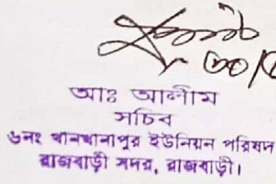 আঃ আলীম
সচিব
৬নং খানখানাপুর ইউনিয়ন পরিষদ
রাজবাড়ী সদর, রাজবাড়ী।